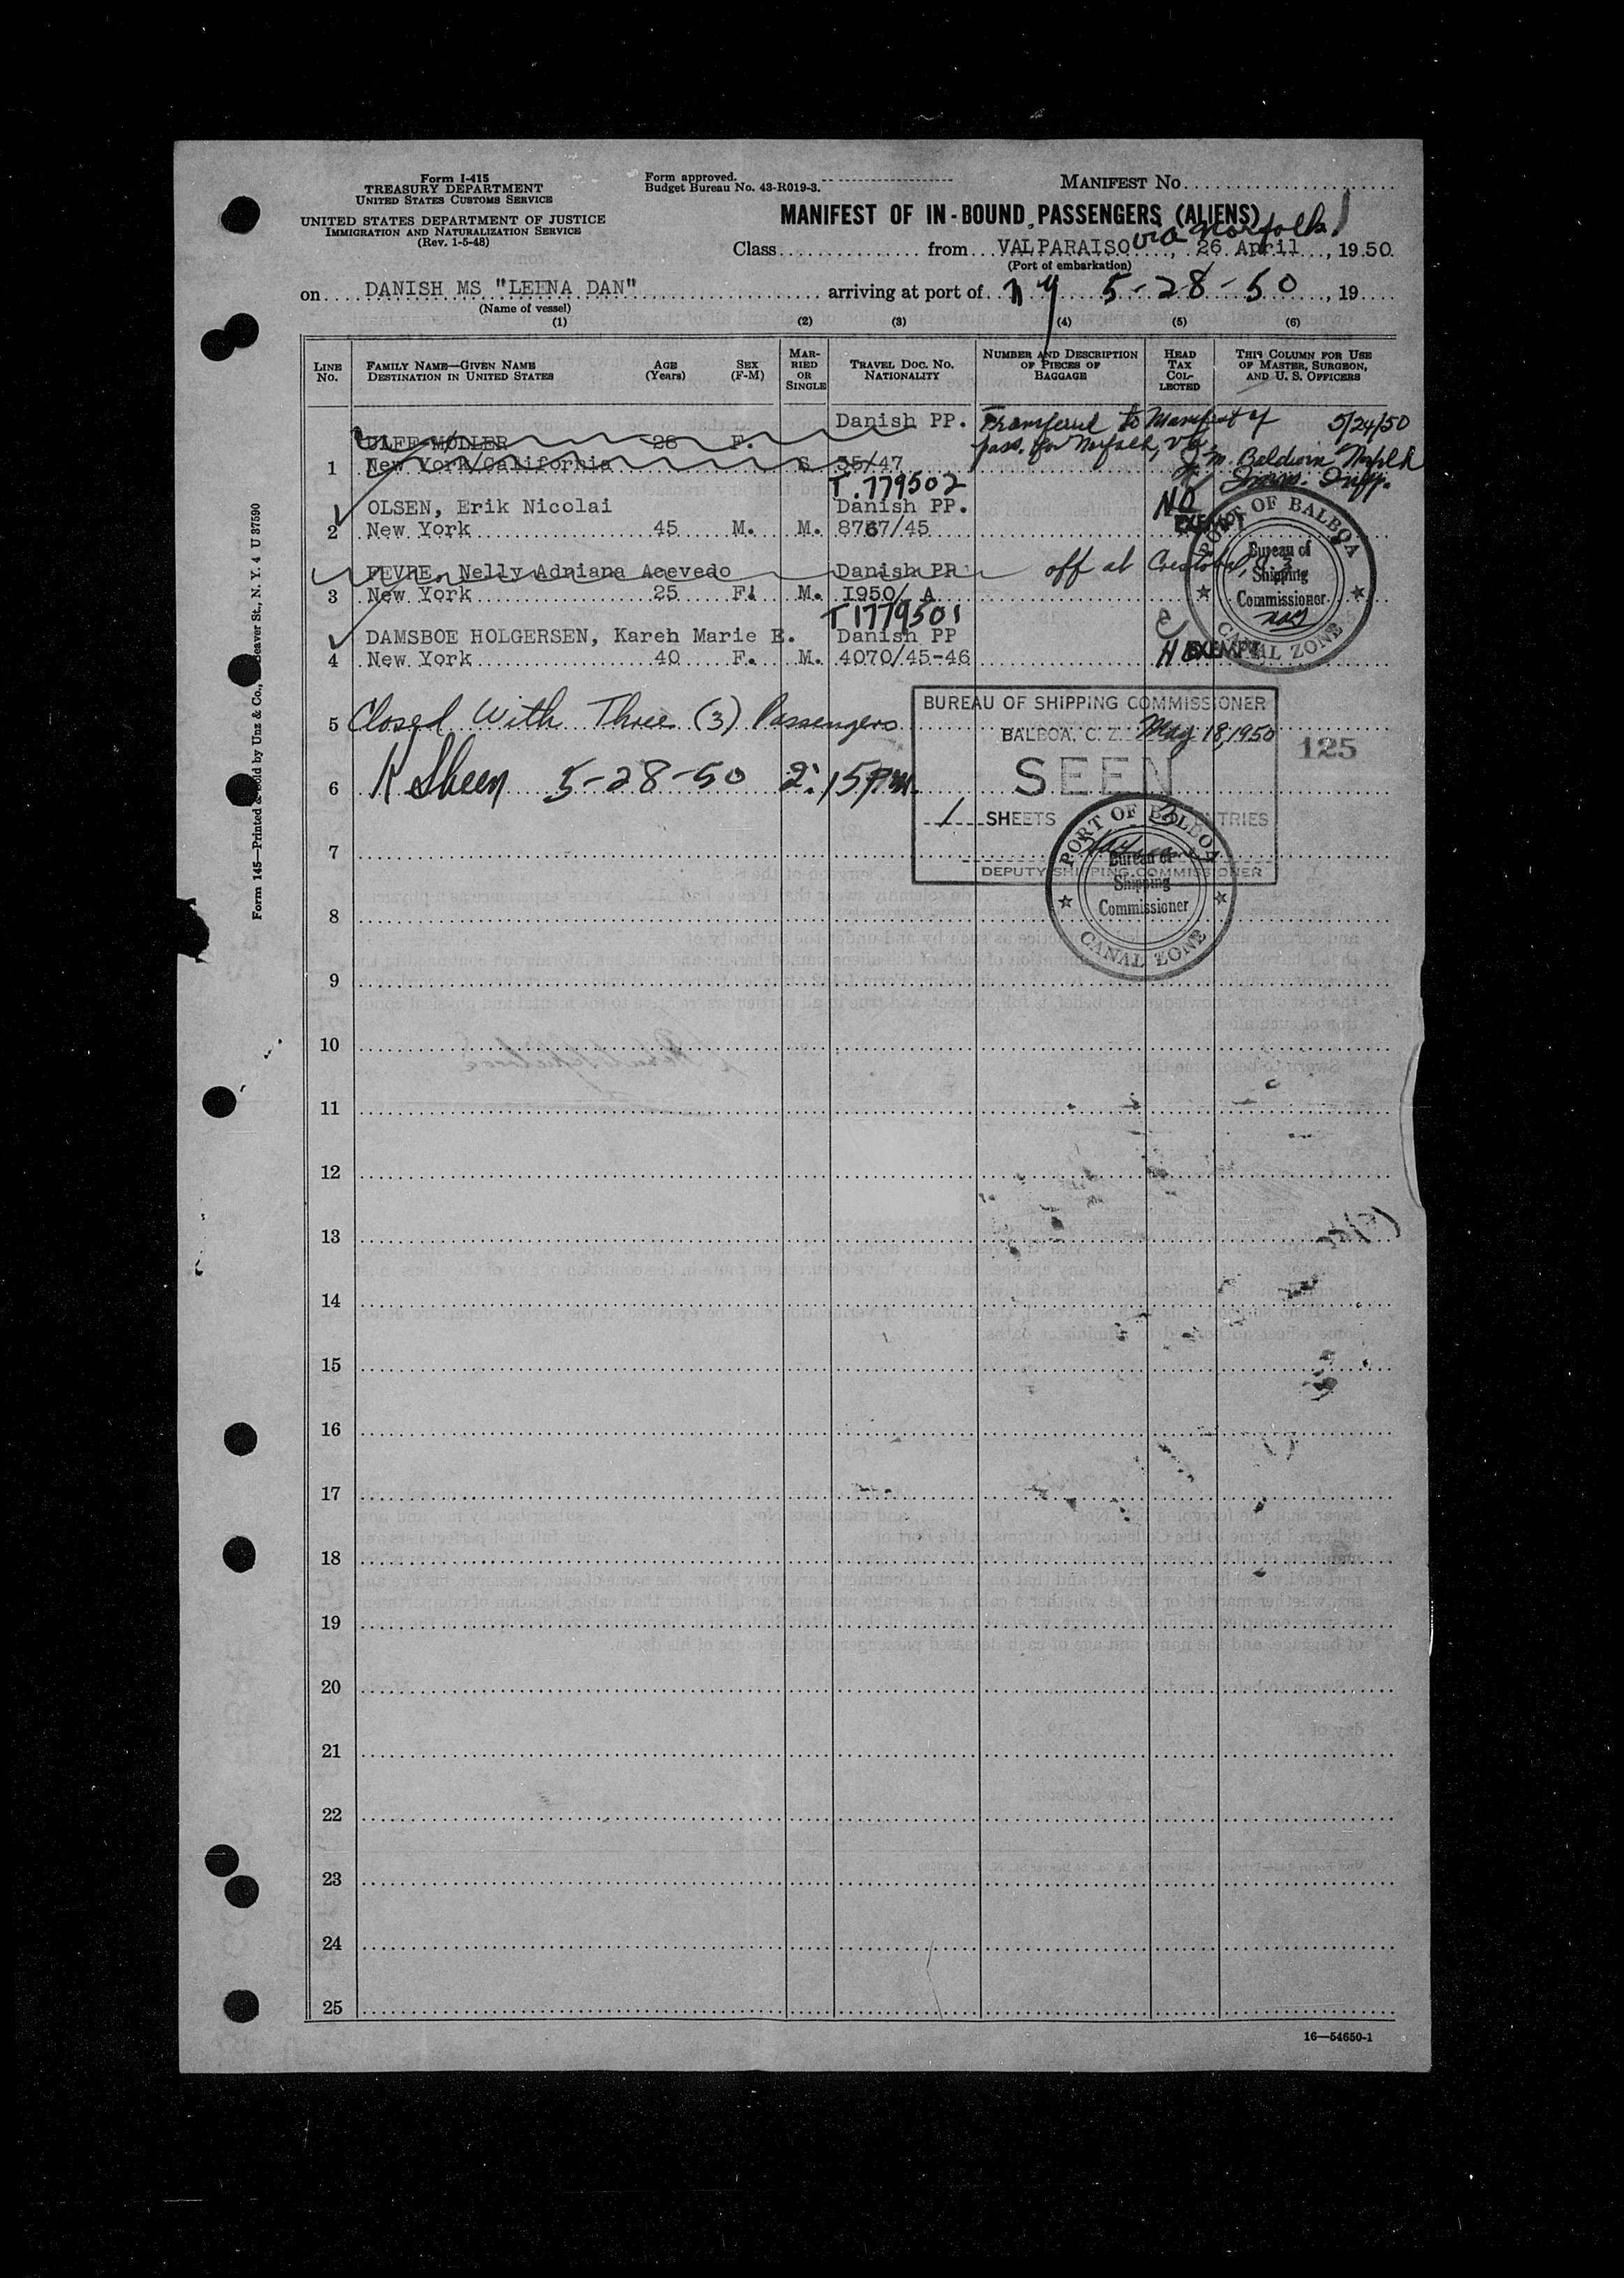 Form I-415
TREASURY DEPARTMENT
UNITED STATES CUSTOMS SERVICE
UNITED STATES DEPARTMENT OF JUSTICE
IMMIGRATION AND NATURALIZATION SERVICE
(Rev. 1-5-48)
Form approved.
Budget Bureau No. 43-R019-3.
MANIFEST NO.
MANIFEST OF IN-BOUND PASSENGERS (ALIENS)
Class from VALPARAISO via Norfolk, 26 April, 1950.
(Port of embarkation)
on DANISH MS "LEENA DAN" arriving at port of NY 5-28-50, 19
(Name of vessel)
(1) (2) (3) (4) (5) (6)
LINE NO.
FAMILY NAME—GIVEN NAME
DESTINATION IN UNITED STATES
AGE (Years)
SEX (F-M)
MARRIED OR SINGLE
TRAVEL DOC. NO.
NATIONALITY
NUMBER AND DESCRIPTION OF PIECES OF BAGGAGE
HEAD TAX COLLECTED
THIS COLUMN FOR USE OF MASTER, SURGEON, AND U. S. OFFICERS
Danish PP. Transferred to Manifest of 5/24/50
MØLLER 26 F. pass. for Norfolk, Va
1 New York/California S. 35/47 Baldwin Norfolk
Immig. Insp.
T.779502
OLSEN, Erik Nicolai Danish PP. NO
2 New York 45 M. M. 8767/45 EXEMPT
FEVRE, Nelly Adriana Acevedo Danish PP off at Cristobal, C.Z.
3 New York 25 F. M. I950/ A
T1779501
DAMSBOE HOLGERSEN, Kareh Marie E. Danish PP
4 New York 40 F. M. 4070/45-46 H EXEMPT
PORT OF BALBOA
Bureau of
Shipping
Commissioner
CANAL ZONE
5 Closed With Three (3) Passengers
6 K Sheen 5-28-50 2:15 PM
BUREAU OF SHIPPING COMMISSIONER
BALBOA, C. Z. May 18, 1950
SEEN
1 SHEETS ENTRIES
DEPUTY SHIPPING COMMISSIONER
125
PORT OF BALBOA
Bureau of
Shipping
Commissioner
CANAL ZONE
7
8
9
10
11
12
13
14
15
16
17
18
19
20
21
22
23
24
25
16—54650-1
Form 145—Printed & Sold by Unz & Co., Beaver St., N. Y. 4 U 37590